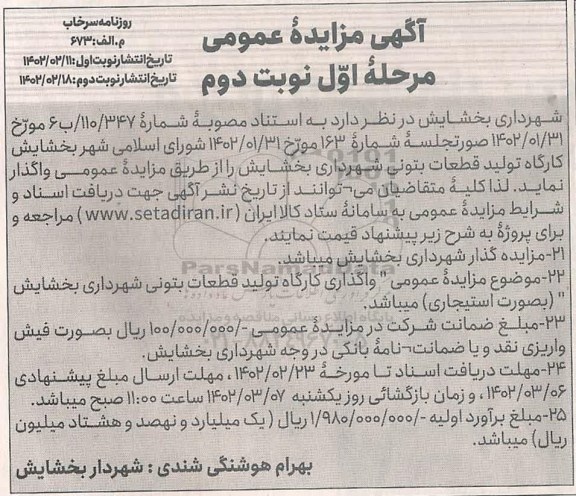 آگهی مزایدهٔ عمومی
مرحلهٔ اوّل نوبت دوم
روزنامه سرخاب
م.الف: ۶۷۳
تاریخ انتشار نوبت اول: ۱۴۰۲/۰۲/۱۱
تاریخ انتشار نوبت دوم: ۱۴۰۲/۰۲/۱۸
شهرداری بخشایش در نظر دارد به استناد مصوبهٔ شمارهٔ ۱۱۰/۳۴۷/ب۶ مورّخ
۱۴۰۲/۰۱/۳۱ صورتجلسهٔ شمارهٔ ۱۶۳ مورّخ ۱۴۰۲/۰۱/۳۱ شورای اسلامی شهر بخشایش
کارگاه تولید قطعات بتونی شهرداری بخشایش را از طریق مزایدهٔ عمومی واگذار
نماید. لذا کلیهٔ متقاضیان می¬توانند از تاریخ نشر آگهی جهت دریافت اسناد و
شرایط مزایدهٔ عمومی به سامانهٔ ستاد کالا ایران ( www.setadiran.ir ) مراجعه و
برای پروژهٔ به شرح زیر پیشنهاد قیمت نمایند.
۲۱-مزایده گذار شهرداری بخشایش میباشد.
۲۲-موضوع مزایدهٔ عمومی " واگذاری کارگاه تولید قطعات بتونی شهرداری بخشایش
" (بصورت استیجاری) میباشد.
۲۳-مبلغ ضمانت شرکت در مزایدهٔ عمومی -/۱۰۰/۰۰۰/۰۰۰ ریال بصورت فیش
واریزی نقد و یا ضمانت¬نامهٔ بانکی در وجه شهرداری بخشایش.
۲۴-مهلت دریافت اسناد تا مورخهٔ ۱۴۰۲/۰۲/۲۳ ، مهلت ارسال مبلغ پیشنهادی
۱۴۰۲/۰۳/۰۶ ، و زمان بازگشائی روز یکشنبه ۱۴۰۲/۰۳/۰۷ ساعت ۱۱:۰۰ صبح میباشد.
۲۵-مبلغ برآورد اولیه -/۱/۹۸۰/۰۰۰/۰۰۰ ریال ( یک میلیارد و نهصد و هشتاد میلیون
ریال) میباشد.
بهرام هوشنگی شندی : شهردار بخشایش
ParsNamadData
پایگاه اطلاع رسانی مناقصه و مزایده